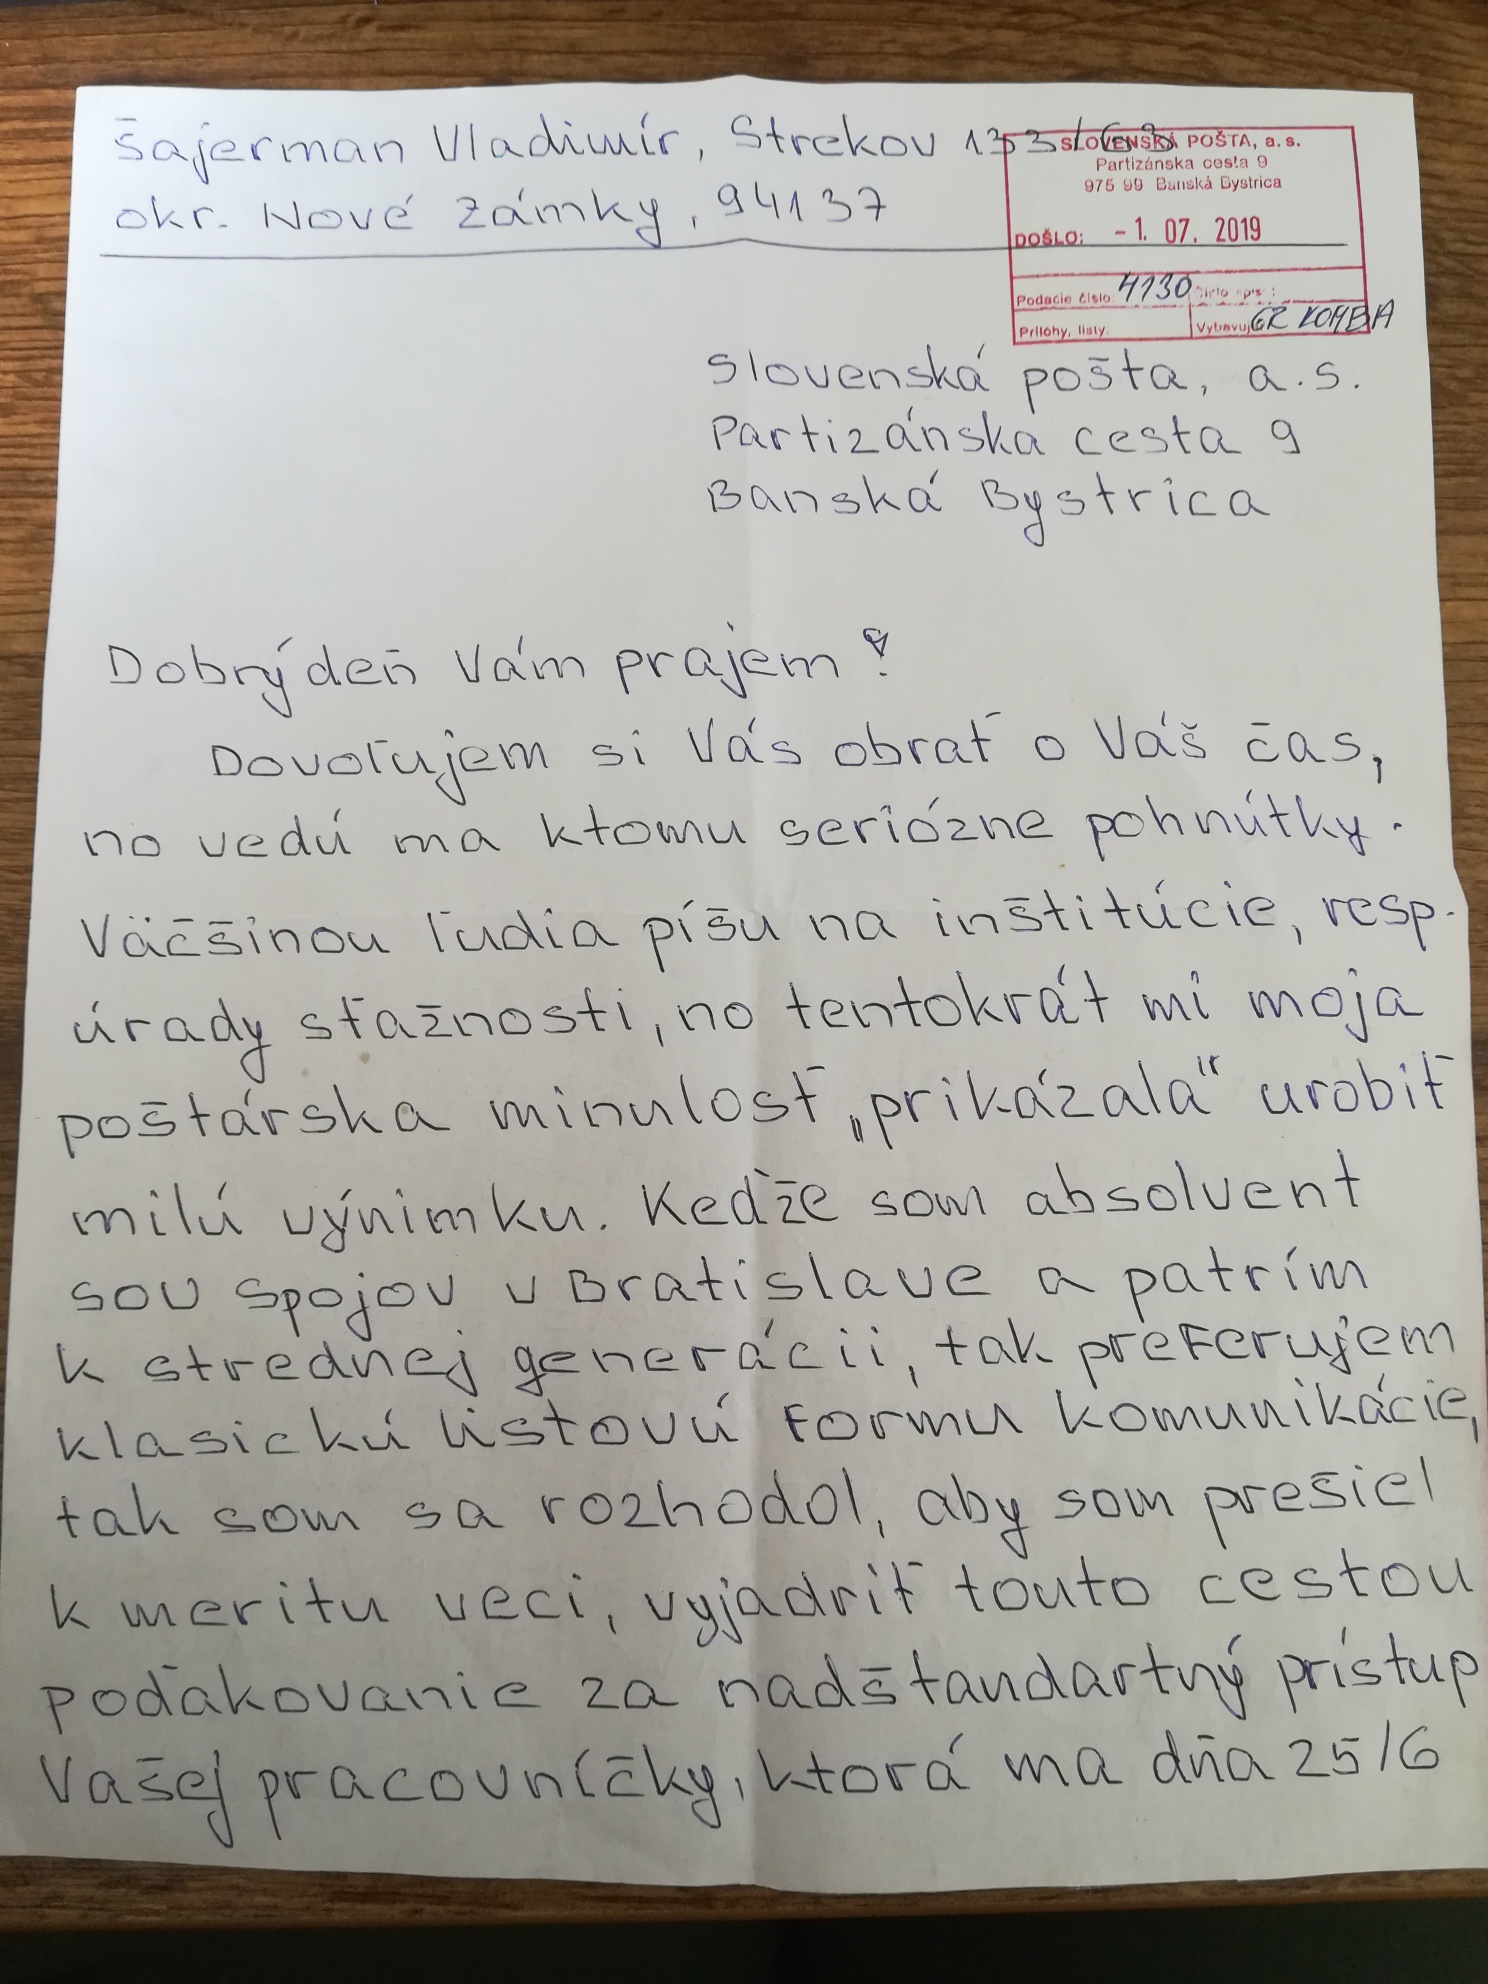 Šajerman Vladimír, Strekov 133
okr. Nové Zámky, 94137
SLOVENSKÁ POŠTA, a. s.
Partizánska cesta 9
975 99 Banská Bystrica
DOŠLO: -1. 07. 2019
Podacie číslo: 4130 Číslo
Prílohy, listy: Vybavuj
Slovenská pošta, a.s.
Partizánska cesta 9
Banská Bystrica
Dobrý deň Vám prajem!
Dovoľujem si Vás obrať o Váš čas,
no vedú ma ktomu seriózne pohnútky.
Väčšinou ľudia píšu na inštitúcie, resp.
úrady sťažnosti, no tentokrát mi moja
poštárska minulosť „prikázala" urobiť
milú výnimku. Keďže som absolvent
SOU spojov v Bratislave a patrím
k strednej generácii, tak preferujem
klasickú listovú formu komunikácie,
tak som sa rozhodol, aby som prešiel
k meritu veci, vyjadriť touto cestou
poďakovanie za nadštandartný prístup
Vašej pracovníčky, ktorá ma dňa 25/6